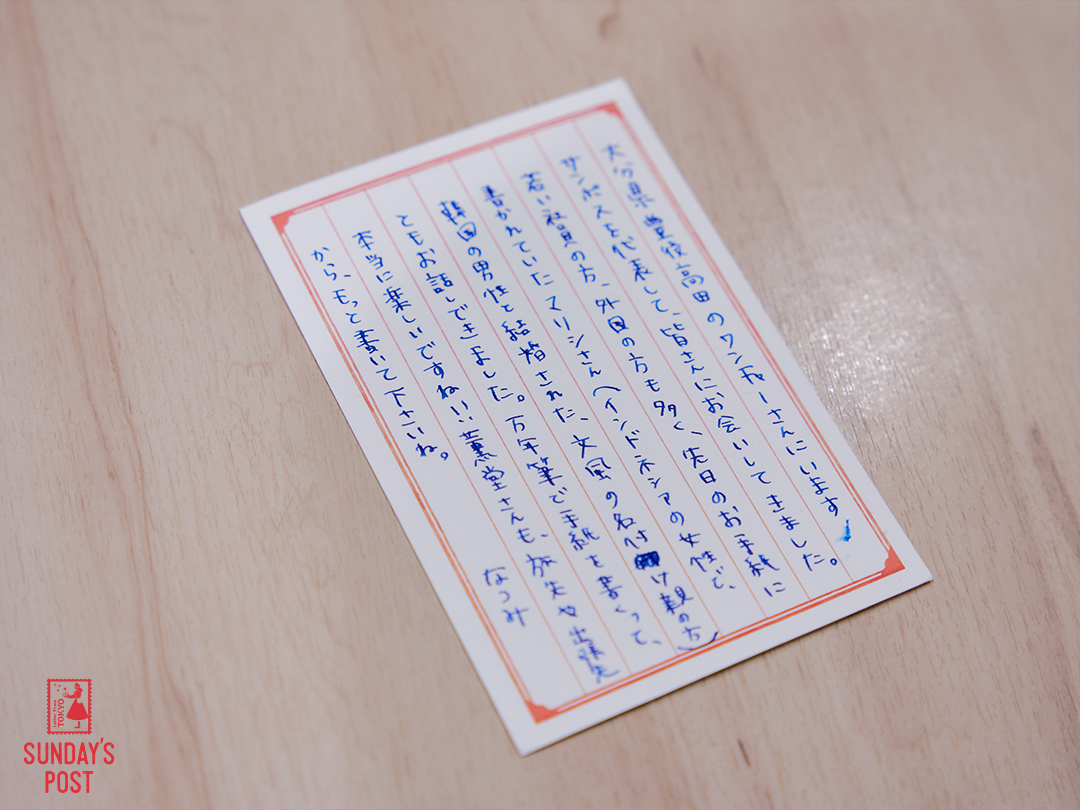 大分県豊後高田のワンチャーさんにいます
サンポスを代表して、皆さんにお会いしてきました。
若い社員の方、外国の方も多く、先日のお手紙に
書かれていたマリシさん(インドネシアの女性で、
韓国の男性と結婚された、文風の名付け親の方)
ともお話しできました。万年筆で手紙を書くって、
本当に楽しいですねい、薫堂さんも、旅先や出張先
から、もっと書いて下さいね。
なつみ
Letter From
TOKYO
SUNDAY'S
POST